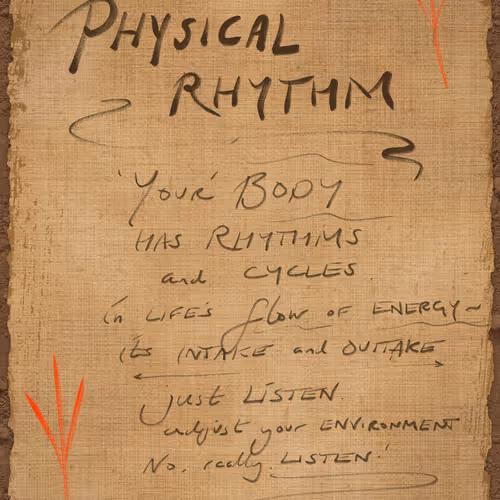 PHYSICAL
RHYTHM
'YOUR' BODY
HAS RHYTHMS
and CYCLES.
in LIFE'S flow OF ENERGY~
its INTAKE and OUTTAKE
just LISTEN.
adjust your ENVIRONMENT
No, really. LISTEN!